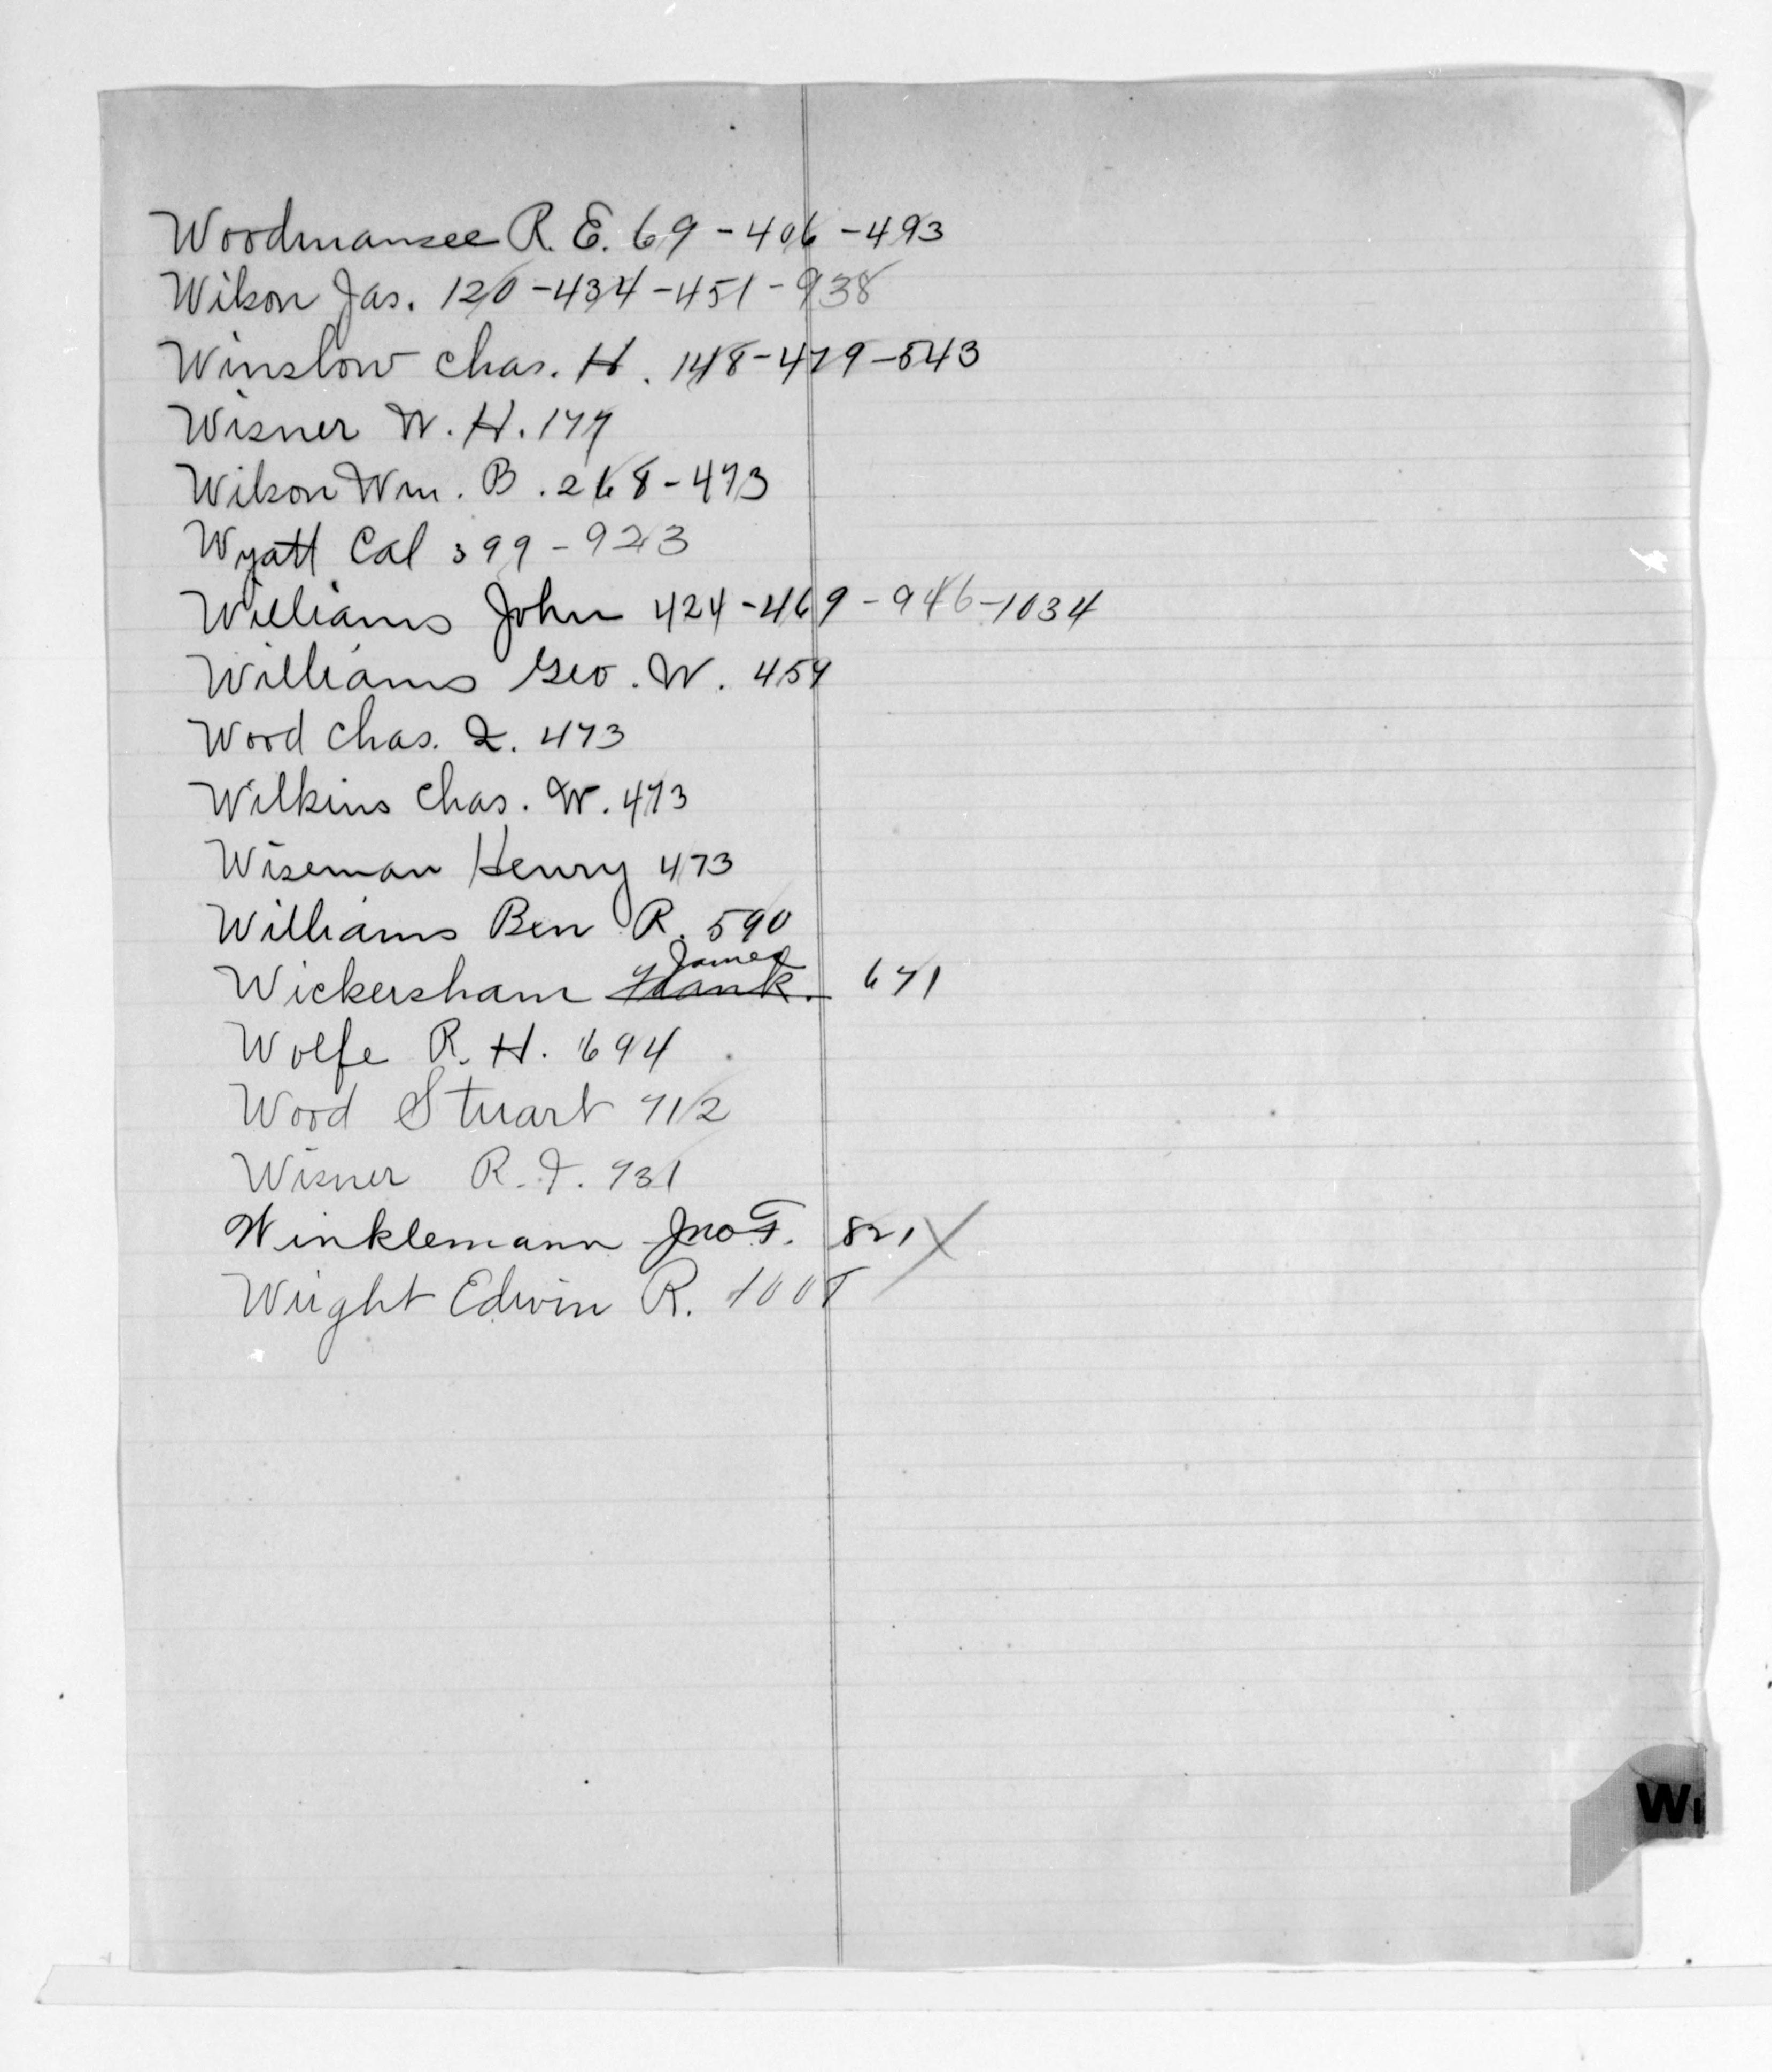 Woodmansee R. E. 69-406-493
Wilson Jas. 120-434-451-938
Winslow Chas. H. 148-479-543
Wisner W. H. 177
Wilson Wm. B. 268-473
Wyatt Cal 399-923
Williams John 424-469-946-1034
Williams Geo. W. 457
Wood Chas. Q. 473
Wilkins Chas. W. 473
Wiseman Henry 473
Williams Ben R. 590
James
Wickersham Hank. 671
Wolfe R. H. 694
Wood Stuart 712
Wisner R. I. 731
Winklemann Jno F. 821 X
Wright Edwin R. 1008
Wi